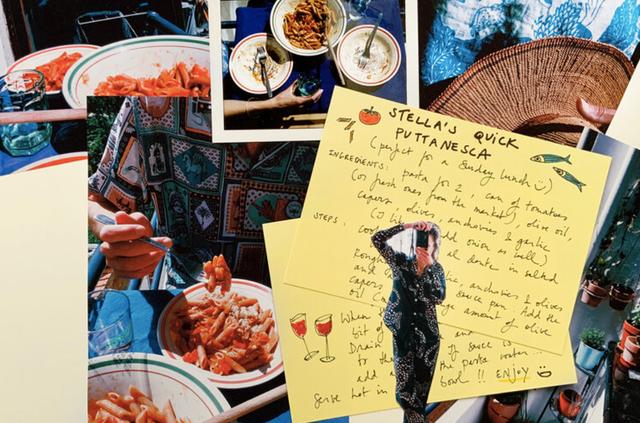 STELLA'S QUICK
PUTTANESCA
(perfect for a Sunday lunch)
INGREDIENTS: pasta for 2, can of tomatoes
(or fresh ones from the market), olive oil,
capers, olives, anchovies & garlic
(I like to add onion as well)
STEPS: al dente in salted
and anchovies & olives
capers sauce pan. Add the
oil amount of olive
When
bit of and
Drain If sauce is
to the the pasta water...
add bowl!! ENJOY
Serve hot in